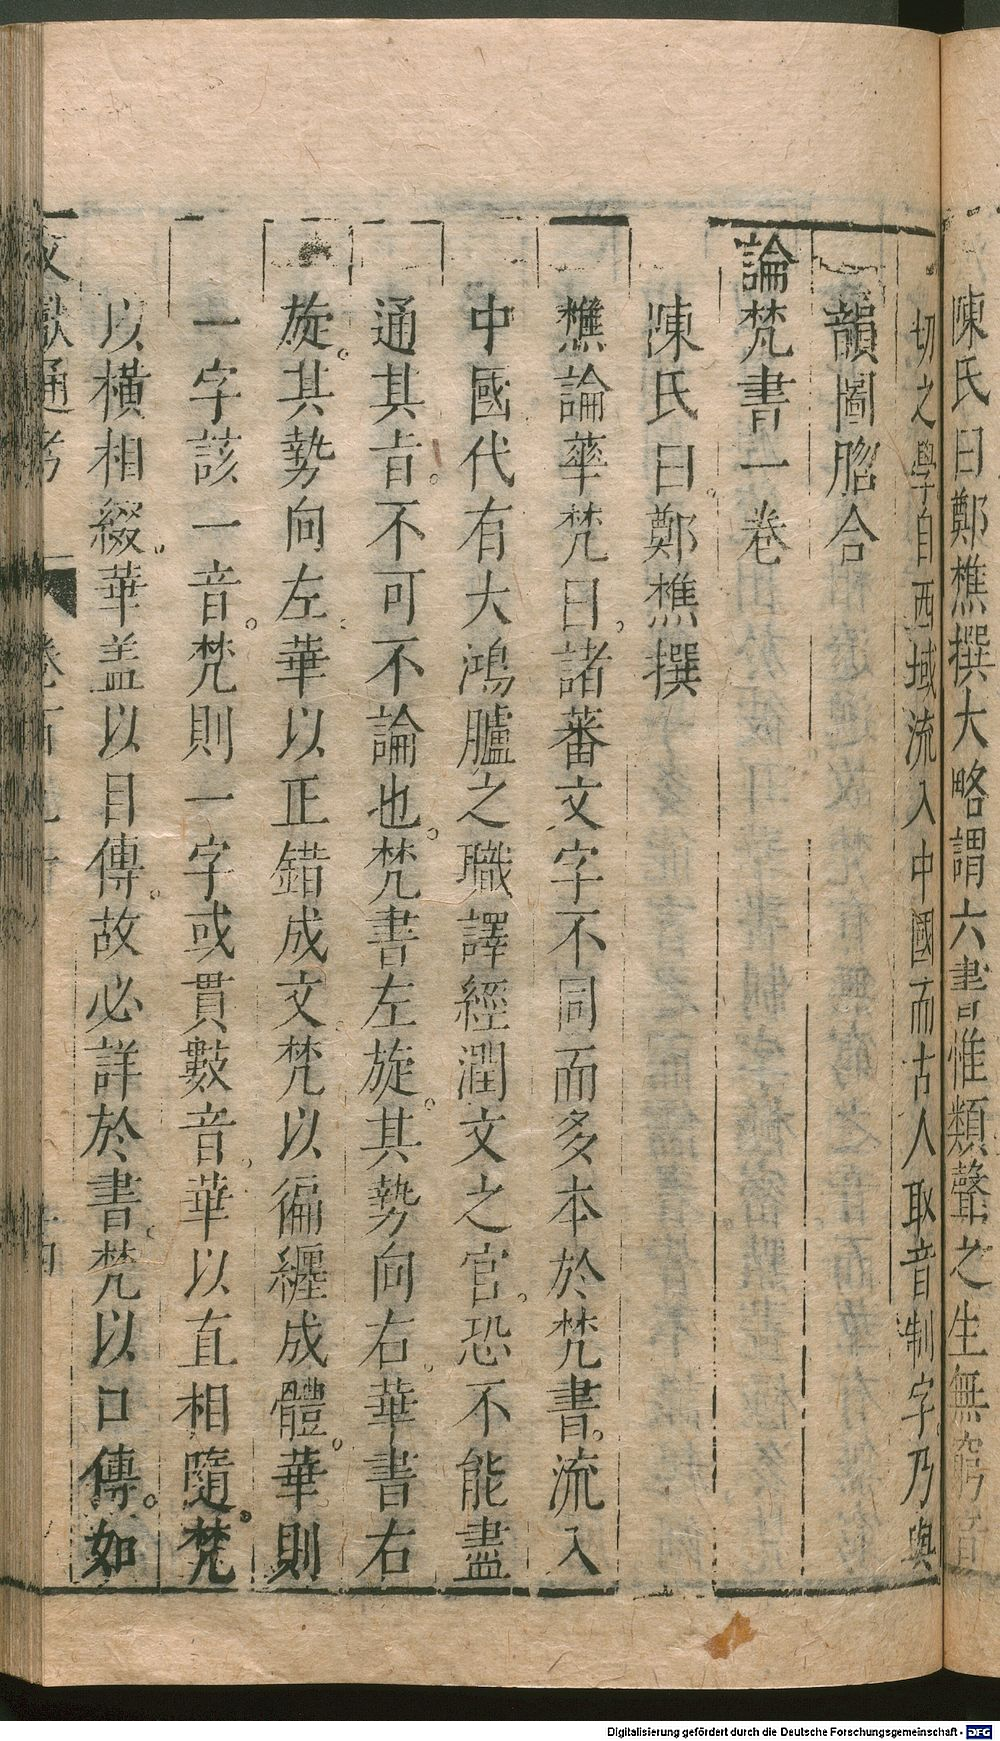 陳氏曰鄭樵撰大略謂六書惟類聲之生無窮音
切之學自西域流入中國而古人取音制字乃與
韻圖脗合
論梵書一卷
陳氏曰鄭樵撰
樵論華梵曰諸蕃文字不同而多本於梵書流入
中國代有大鴻臚之職譯經潤文之官恐不能盡
通其旨不可不論也梵書左旋其勢向右華書右
旋其勢向左華以正錯成文梵以徧纏成體華則
一字該一音梵則一字或貫數音華以直相隨梵
以橫相綴華盖以目傳故必詳於書梵以口傳如
文獻通考
Digitalisierung gefördert durch die Deutsche Forschungsgemeinschaft - DFG